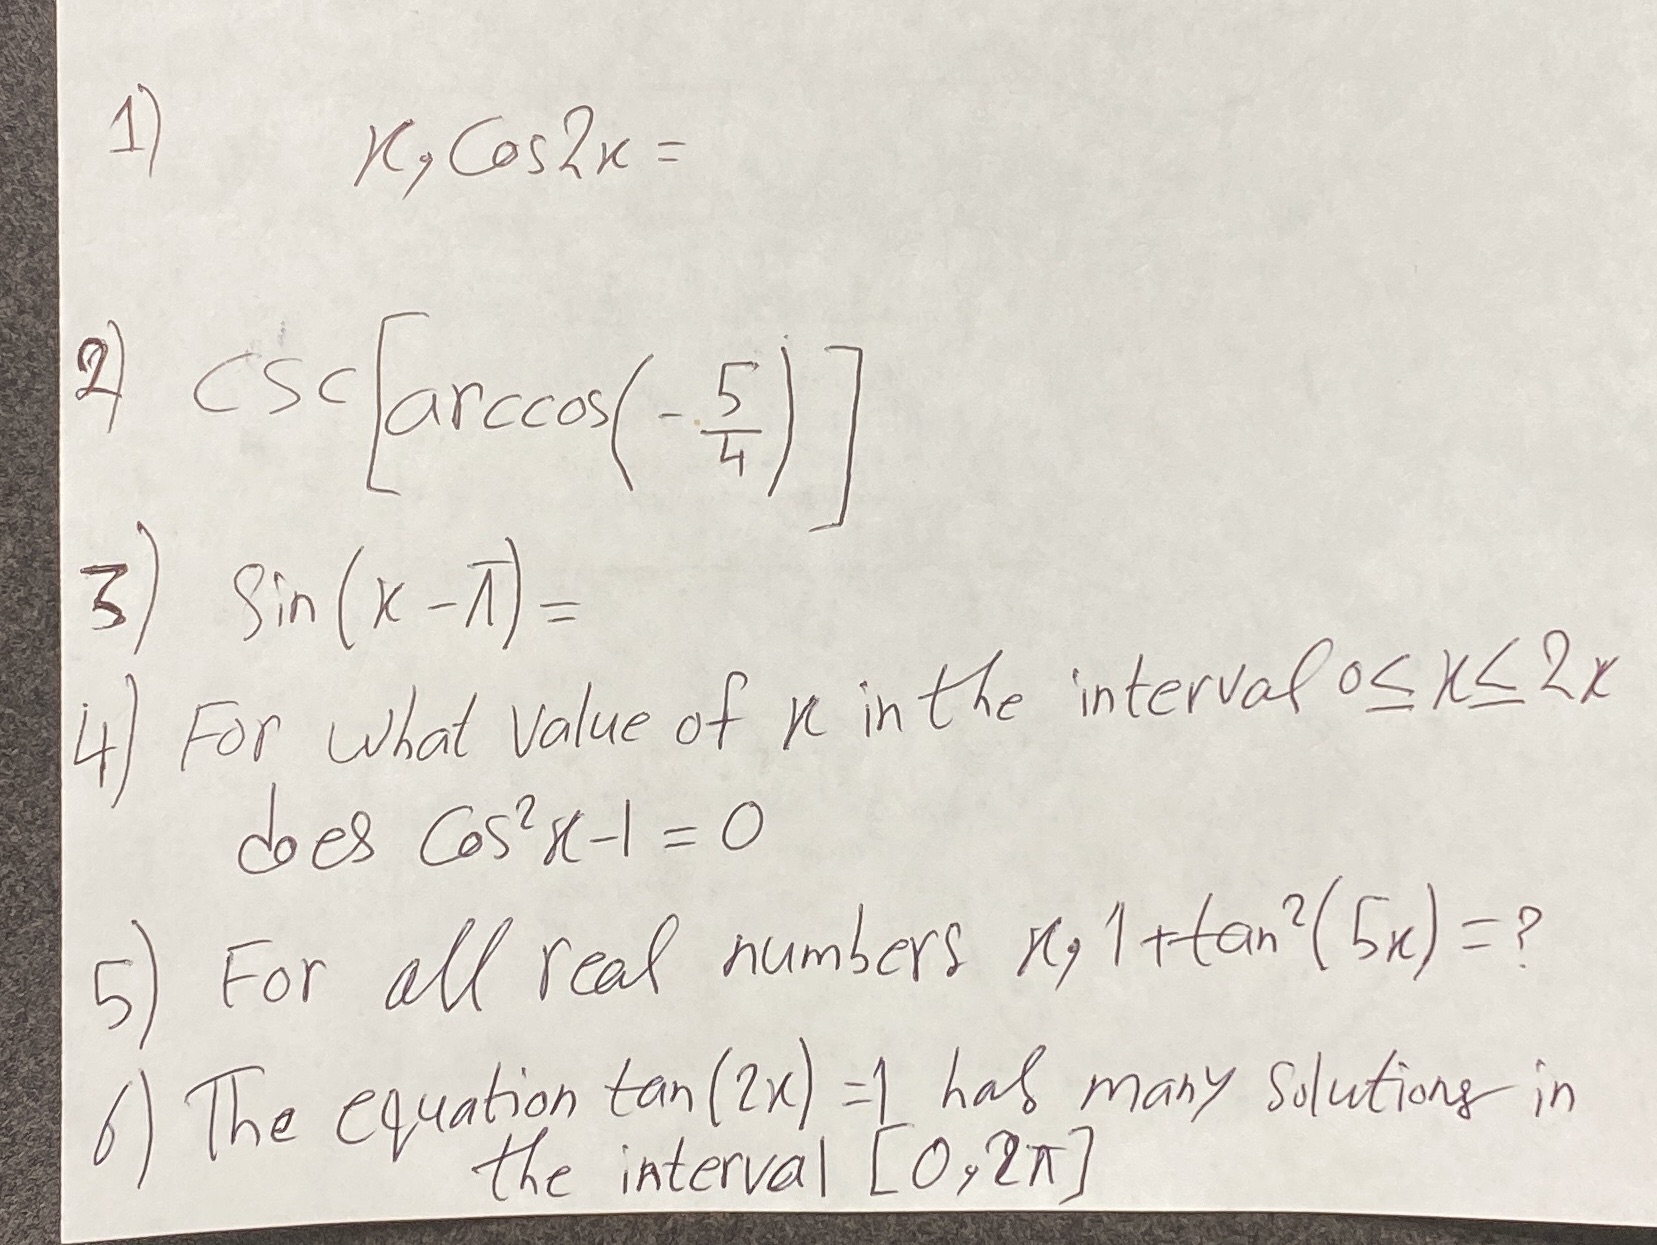 1) x, Cos2x =
2) csc[arccos(-5/4)]
3) Sin(x-π) =
4) For what value of x in the interval 0≤x≤2x
does Cos²x-1 = 0
5) For all real numbers x, 1+tan²(5x) = ?
6) The equation tan(2x) = 1 has many solutions in
the interval [0,2π]